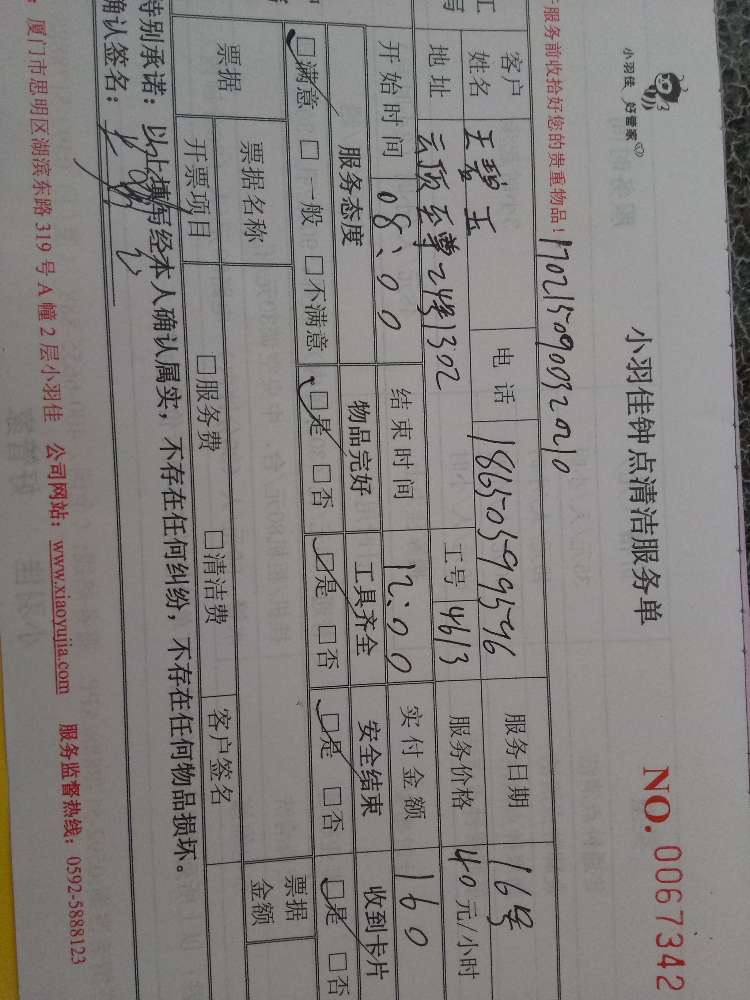 小羽佳 好管家
小羽佳钟点清洁服务单
NO. 0067342
服务前收拾好您的贵重物品！
客户姓名 王碧玉 电话 18650599596 服务日期 16号
地址 云顶至尊24号1302 工号 4613 服务价格 40元/小时
开始时间 08:00 结束时间 12:00 实付金额 160
服务态度 物品完好 工具齐全 安全结束 收到卡片
☑满意 □一般 □不满意 ☑是 □否 ☑是 □否 ☑是 □否 ☑是 □否
票据 票据名称 票据金额
开票项目 □服务费 □清洁费 客户签名
特别承诺：以上填写经本人确认属实，不存在任何纠纷，不存在任何物品损坏。
确认签名：
厦门市思明区湖滨东路319号A幢2层小羽佳 公司网站：www.xiaoyujia.com 服务监督热线：0592-5888123